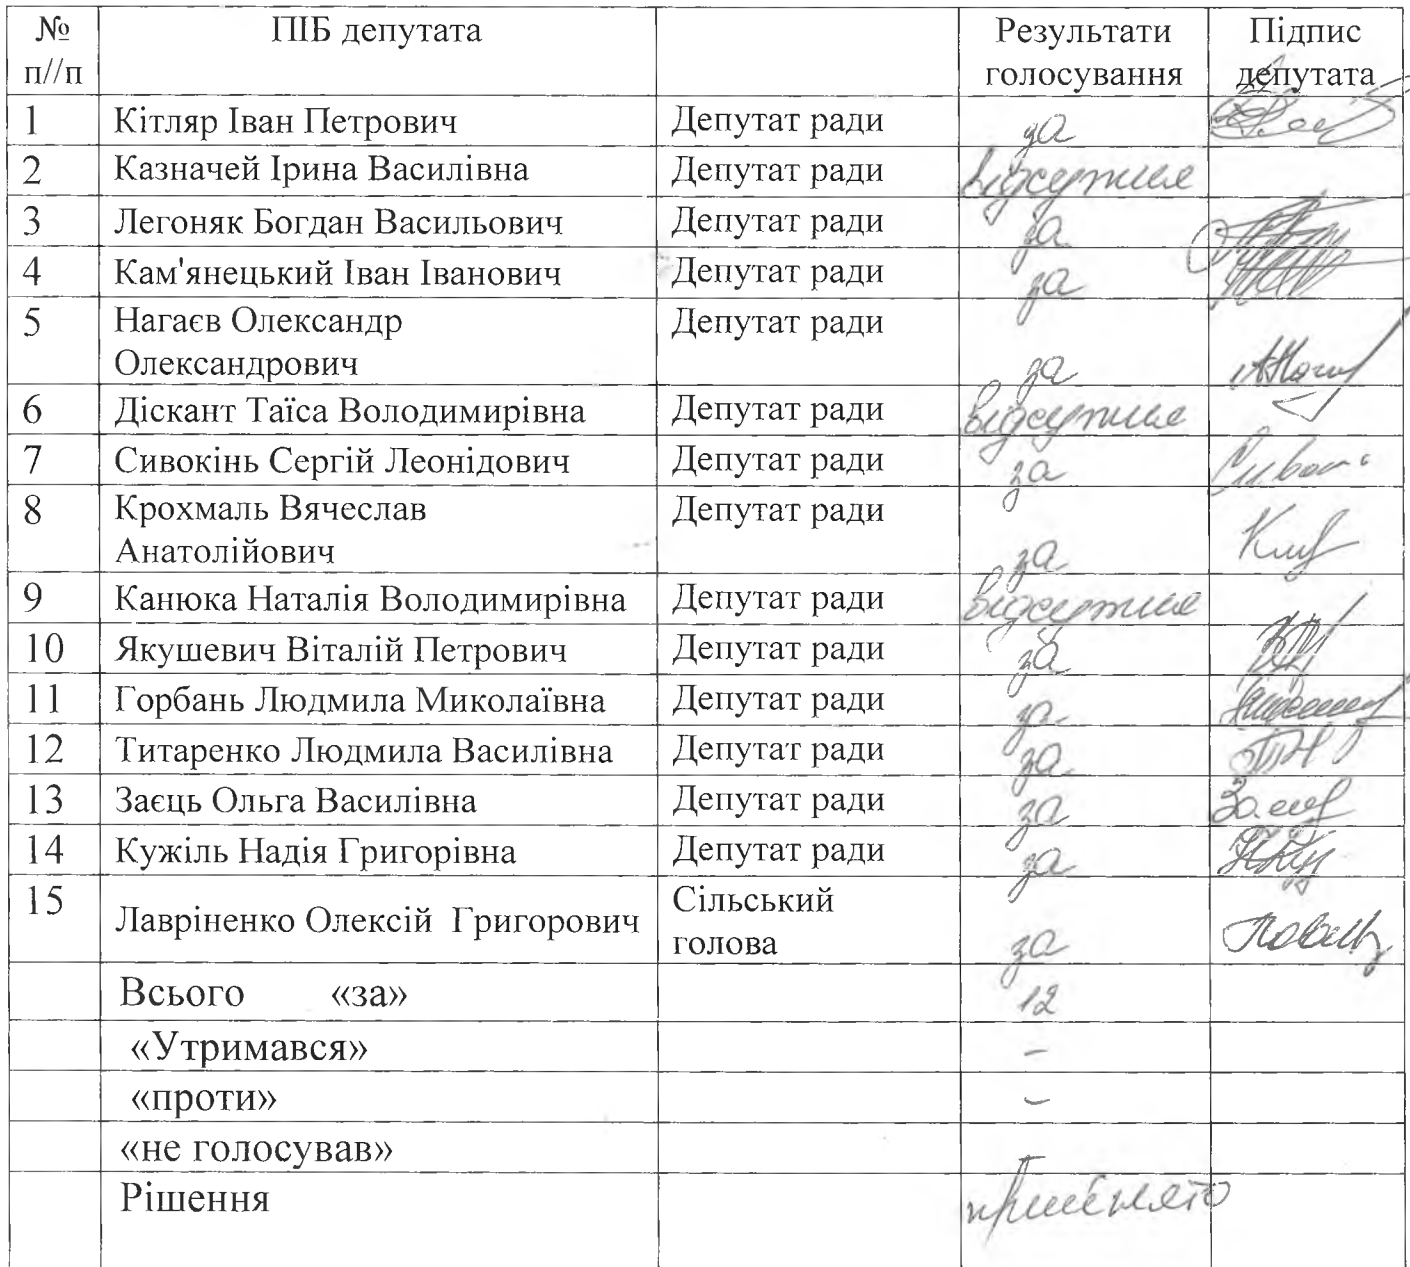 № п//п ПІБ депутата Результати голосування Підпис депутата
1 Кітляр Іван Петрович Депутат ради за
2 Казначей Ірина Василівна Депутат ради відсутня
3 Легоняк Богдан Васильович Депутат ради за
4 Кам'янецький Іван Іванович Депутат ради за
5 Нагаєв Олександр Олександрович Депутат ради за
6 Діскант Таїса Володимирівна Депутат ради відсутня
7 Сивокінь Сергій Леонідович Депутат ради за
8 Крохмаль Вячеслав Анатолійович Депутат ради за
9 Канюка Наталія Володимирівна Депутат ради відсутня
10 Якушевич Віталій Петрович Депутат ради за
11 Горбань Людмила Миколаївна Депутат ради за
12 Титаренко Людмила Василівна Депутат ради за
13 Заєць Ольга Василівна Депутат ради за
14 Кужіль Надія Григорівна Депутат ради за
15 Лавріненко Олексій Григорович Сільський голова за
Всього «за» 12
«Утримався» -
«проти» -
«не голосував»
Рішення